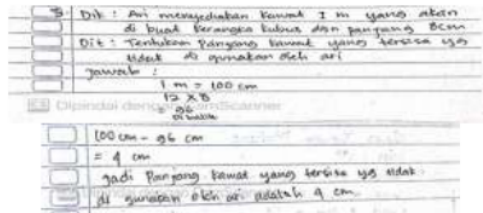 3. Dik : Ari menyediakan kawat 1 m yang akan
di buat kerangka kubus dgn panjang 8cm
Dit : Tentukan panjang kawat yang tersisa yg
tidak di gunakan oleh ari
Jawab :
1 m = 100 cm
12 x 8
= 96
Dipindai dengan CamScanner
100 cm - 96 cm
= 4 cm
Jadi Panjang kawat yang tersisa yg tidak
di gunakan oleh ari adalah 4 cm.